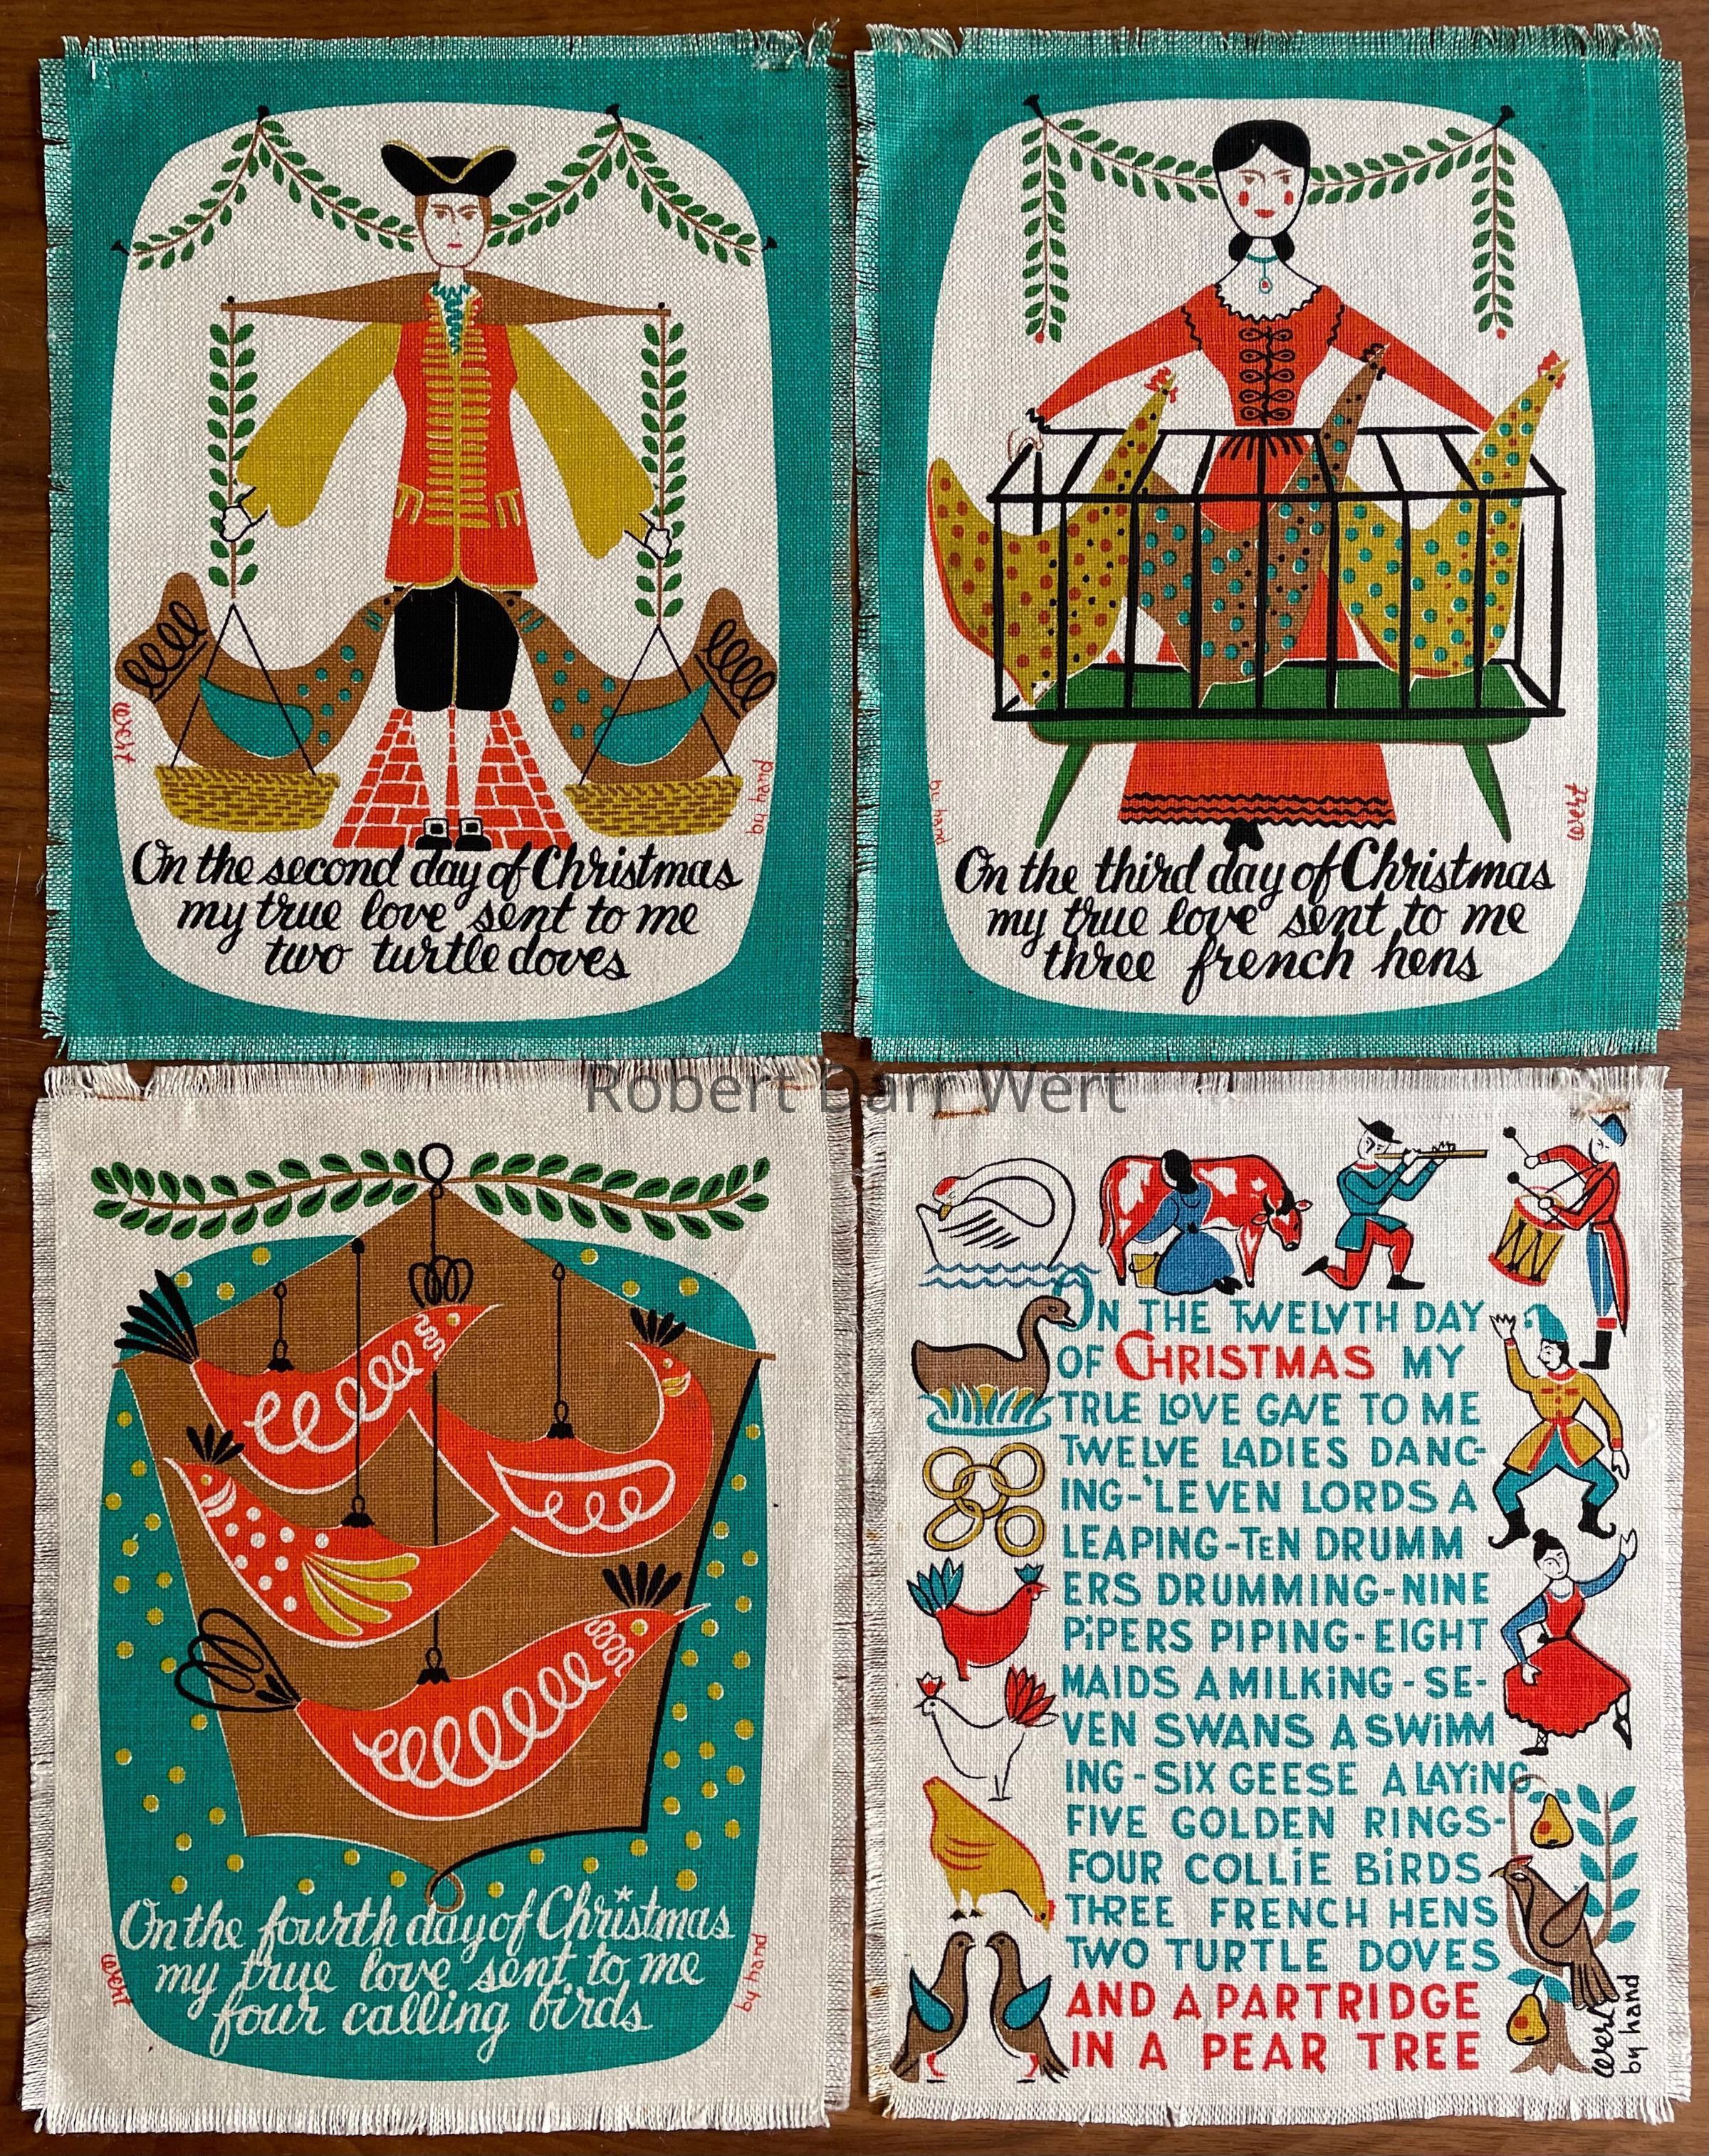 On the second day of Christmas
my true love sent to me
two turtle doves
wert
by hand
On the third day of Christmas
my true love sent to me
three french hens
by hand
wert
Robert Darr Wert
On the fourth day of Christmas
my true love sent to me
four calling birds
wert
by hand
ON THE TWELVTH DAY
OF CHRISTMAS MY
TRUE LOVE GAVE TO ME
TWELVE LADIES DANC-
ING-'LEVEN LORDS A
LEAPING-TEN DRUMM
ERS DRUMMING-NINE
PiPERS PIPING-EIGHT
MAIDS AMILKiNG-SE-
VEN SWANS A SWiMM
ING-SIX GEESE ALAYiNG
FIVE GOLDEN RINGS-
FOUR COLLiE BiRDS
THREE FRENCH HENS
TWO TURTLE DOVES
AND A PARTRIDGE
IN A PEAR TREE
wert
by hand